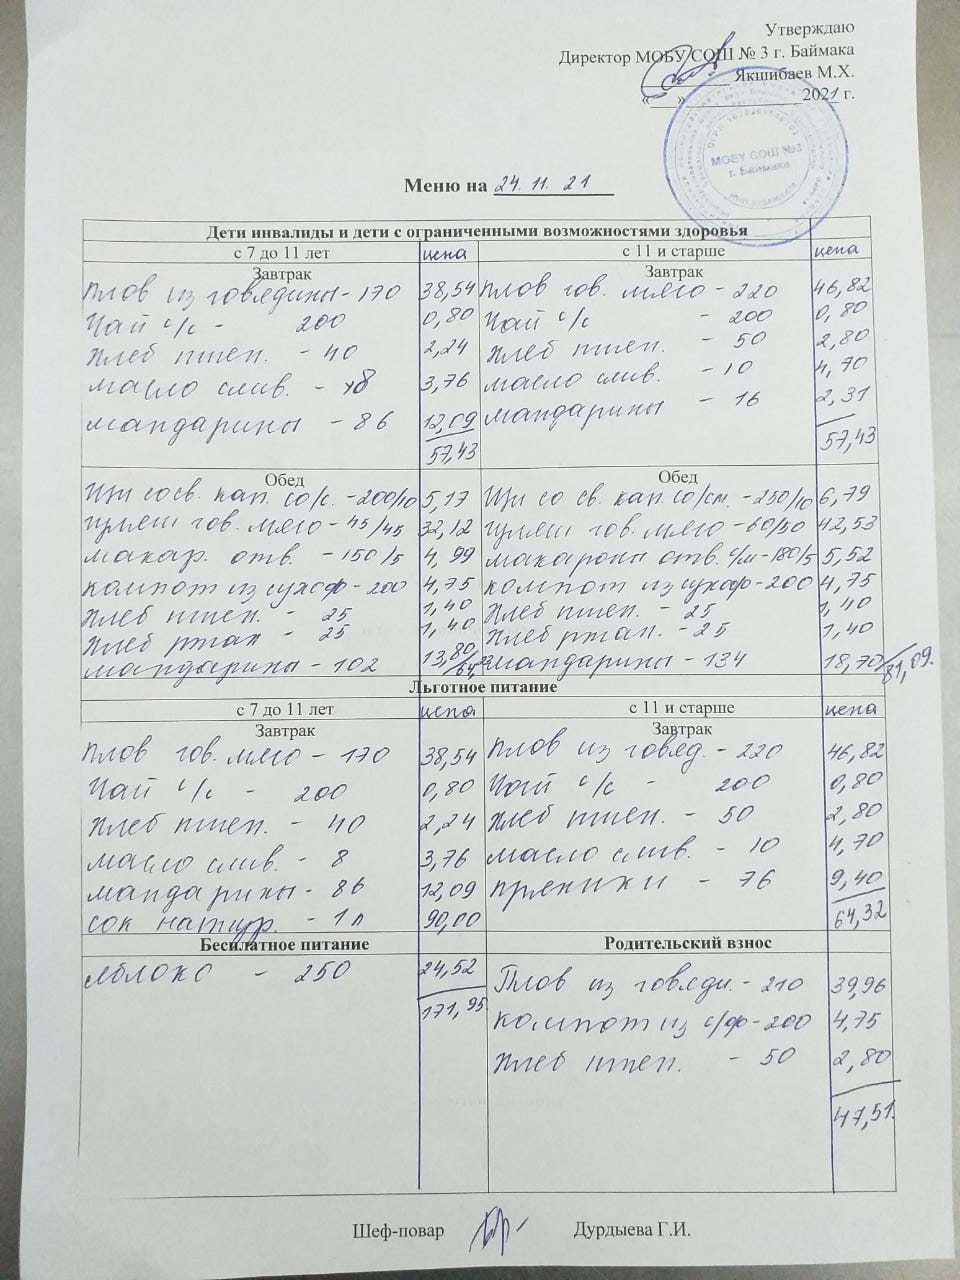 Утверждаю
Директор МОБУ СОШ № 3 г. Баймака
Якшибаев М.Х.
« » 2021 г.
МОБУ СОШ №3
г. Баймака
Меню на 24.11.21
Дети инвалиды и дети с ограниченными возможностями здоровья
с 7 до 11 лет цена с 11 и старше цена
Завтрак Завтрак
Плов из говядины - 170 38,54 Плов гов. мясо - 220 46,82
Чай с/с - 200 0,80 Чай с/с - 200 0,80
Хлеб пшен. - 40 2,24 Хлеб пшен. - 50 2,80
масло слив. - 8 3,76 масло слив. - 10 4,70
мандарины - 86 12,09 мандарины - 16 2,31
57,43 57,43
Обед Обед
Щи со св. кап. со/с. - 200/10 5,17 Щи со св. кап. со/см. - 250/10 6,79
гуляш гов. мясо - 45/45 32,12 гуляш гов. мясо - 60/50 42,53
макар. отв. - 150/5 4,99 макароны отв. с/м - 180/5 5,52
компот из сухоф - 200 4,75 компот из сухоф - 200 4,75
Хлеб пшен. - 25 1,40 Хлеб пшен. - 25 1,40
Хлеб ржан - 25 1,40 Хлеб ржан. - 25 1,40
мандарины - 102 13,80 мандарины - 134 18,70
81,09.
Льготное питание
с 7 до 11 лет цена с 11 и старше цена
Завтрак Завтрак
Плов гов. мясо - 170 38,54 Плов из говяд. - 220 46,82
Чай с/с - 200 0,80 Чай с/с - 200 0,80
Хлеб пшен. - 40 2,24 Хлеб пшен. - 50 2,80
масло слив. - 8 3,76 масло слив. - 10 4,70
мандарины - 86 12,09 пряники - 76 9,40
сок натур. - 1л 90,00 64,32
Бесплатное питание Родительский взнос
яблоко - 250 24,52 Плов из говяди. - 210 39,96
171,95 компот из с/ф - 200 4,75
Хлеб пшен. - 50 2,80
47,51.
Шеф-повар Дурдыева Г.И.